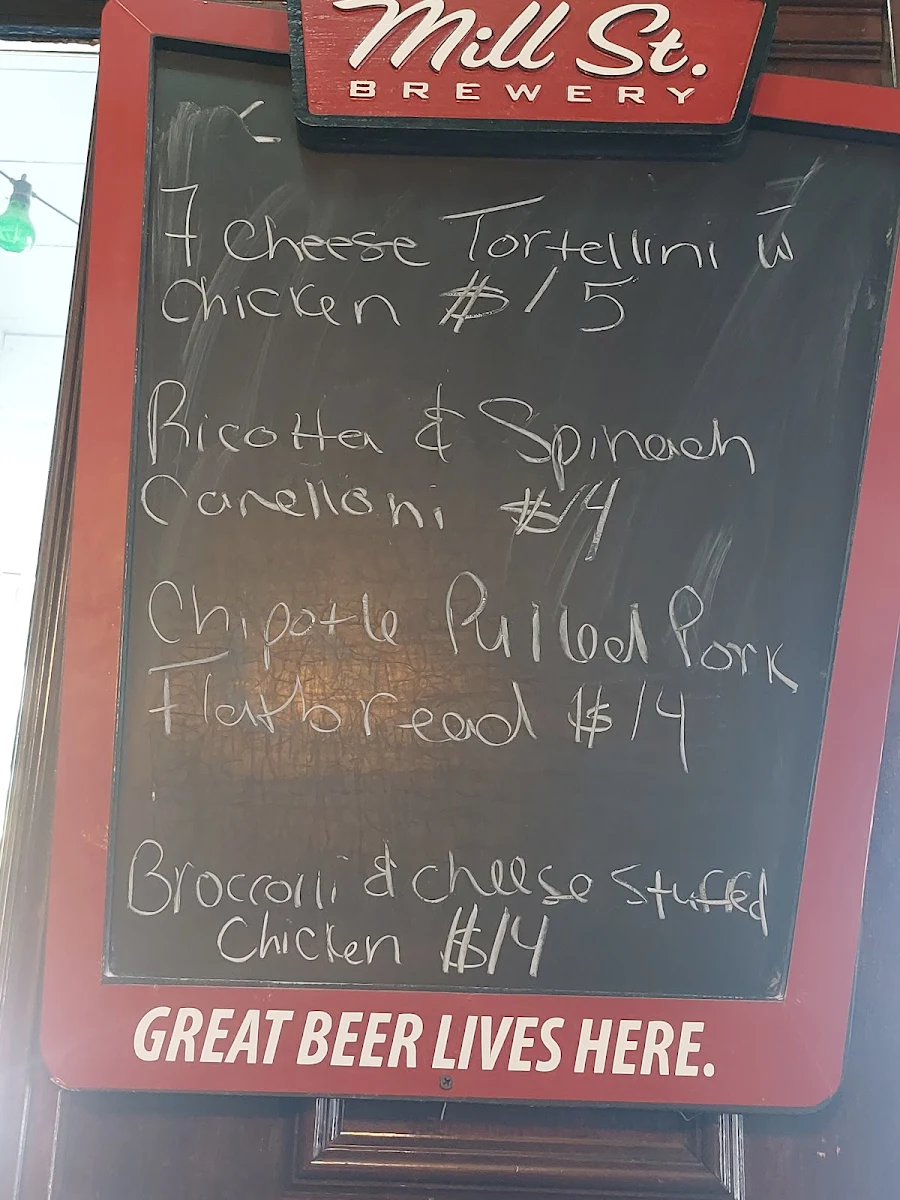 Mill St.
BREWERY
7 Cheese Tortellini w̄
Chicken $15
Ricotta & Spinach
Canelloni $14
Chipotle Pulled Pork
Flatbread $14
Broccolli & cheese Stuffed
Chicken $14
GREAT BEER LIVES HERE.